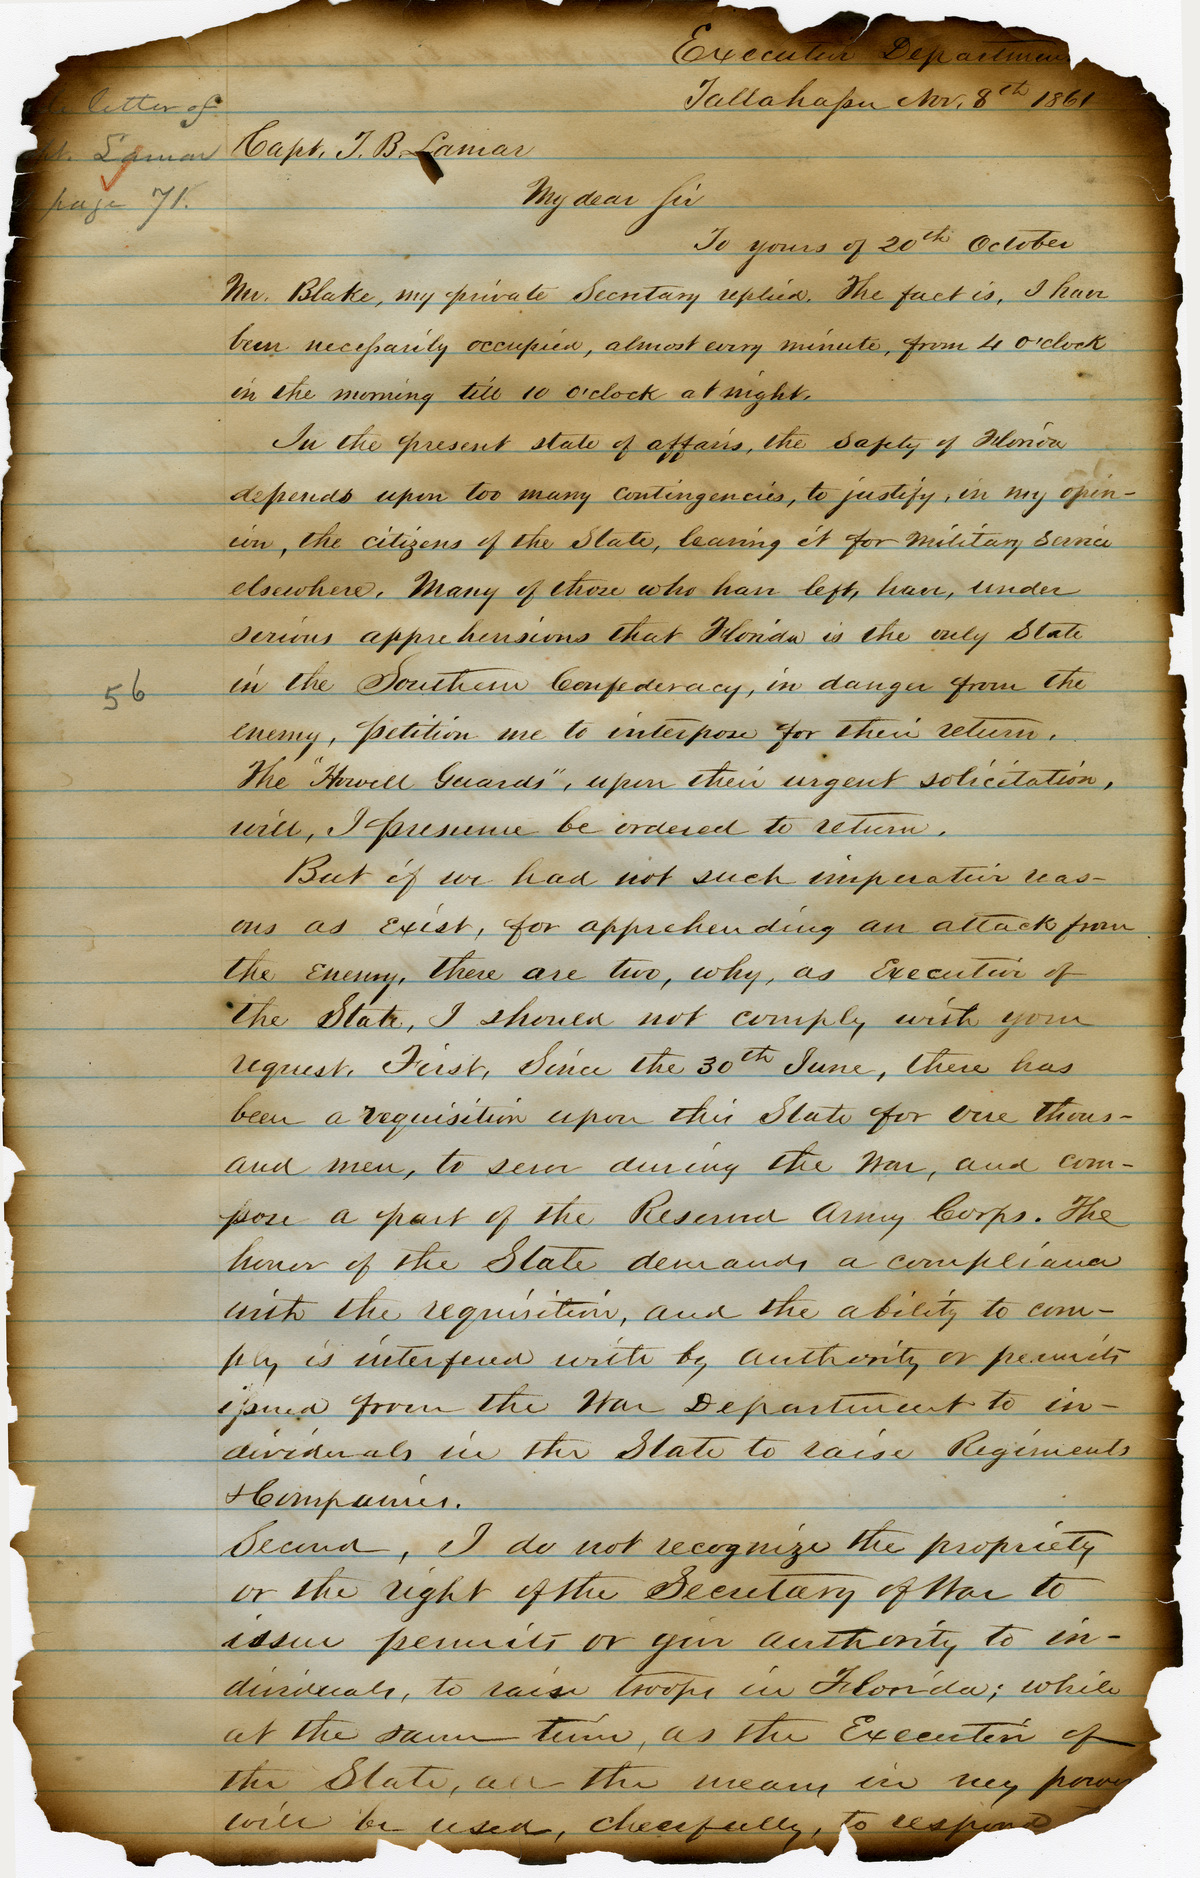 Executive Department
Tallahassee Nov. 8th 1861
letter of
Lamar
page 71.
Capt. T. B. Lamar
My dear Sir
To yours of 20th October
Mr. Blake, my private Secretary replied. The fact is, I have
been necessarily occupied, almost every minute, from 4 o'clock
in the morning till 10 o'clock at night.
In the present state of affairs, the safety of Florida
depends upon too many contingencies, to justify, in my opin-
ion, the citizens of the State, leaving it for military service
elsewhere. Many of those who have left, have, under
serious apprehensions that Florida is the only State
in the Southern Confederacy, in danger from the
56
enemy, petition me to interpose for their return.
The "Howell Guards", upon their urgent solicitation,
will, I presume be ordered to return.
But if we had not such imperative reas-
ons as exist, for apprehending an attack from
the Enemy, there are two, why, as Executive of
the State, I should not comply with your
request. First, Since the 30th June, there has
been a requisition upon this State for one thous-
and men, to serve during the War, and com-
pose a part of the Reserved Army Corps. The
honor of the State demands a compliance
with the requisition, and the ability to com-
ply is interfered with by authority or permits
issued from the War Department to in-
dividuals in the State to raise Regiments
& Companies.
Second, I do not recognize the propriety
or the right of the Secretary of War to
issue permits or give authority to in-
dividuals, to raise troops in Florida; while
at the same time, as the Executive of
the State, all the means in my power
will be used, cheerfully, to respond